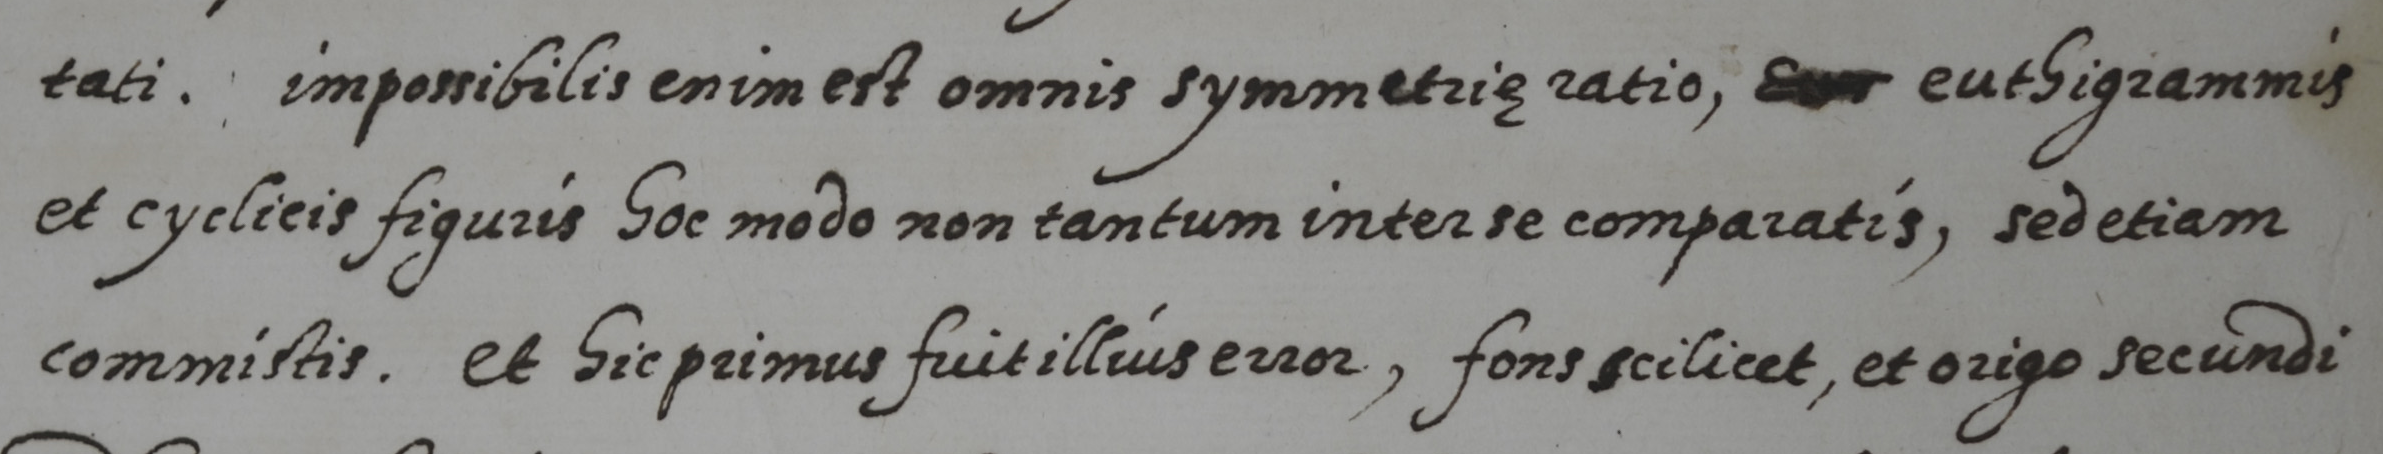 tati. impossibilis enim est omnis symmetrię ratio, euthigrammis
et cyclicis figuris hoc modo non tantum inter se comparatis, sed etiam
commistis. et hic primus fuit illius error, fons scilicet, et origo secundi